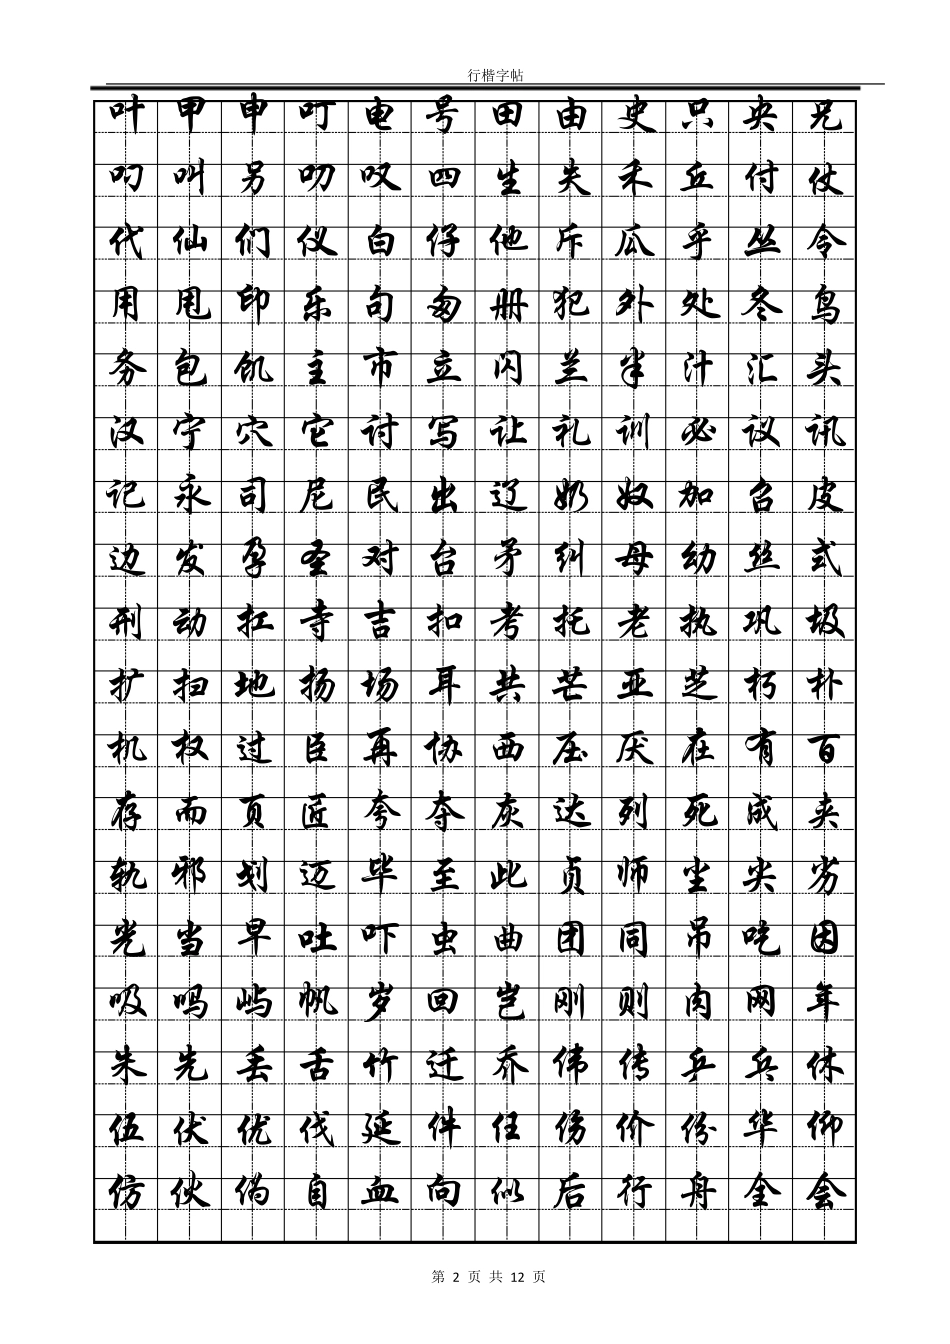 行楷字帖
叶甲申叮电号田由史只央兄
叼叫另叨叹四生失禾丘付仗
代仙们仪白仔他斥瓜乎丛令
用甩印乐句匆册犯外处冬鸟
务包饥主市立闪兰半汁汇头
汉宁穴它讨写让礼训必议讯
记永司尼民出辽奶奴加召皮
边发孕圣对台矛纠母幼丝式
刑动扛寺吉扣考托老执巩圾
扩扫地扬场耳共芒亚芝朽朴
机权过臣再协西压厌在有百
存而页匠夸夺灰达列死成夹
轨邪划迈毕至此贞师尘尖劣
光当早吐吓虫曲团同吊吃因
吸吗屿帆岁回岂刚则肉网年
朱先丢舌竹迁乔伟传乒乓休
伍伏优伐延件任伤价份华仰
仿伙伪自血向似后行舟全会
第 2 页 共 12 页